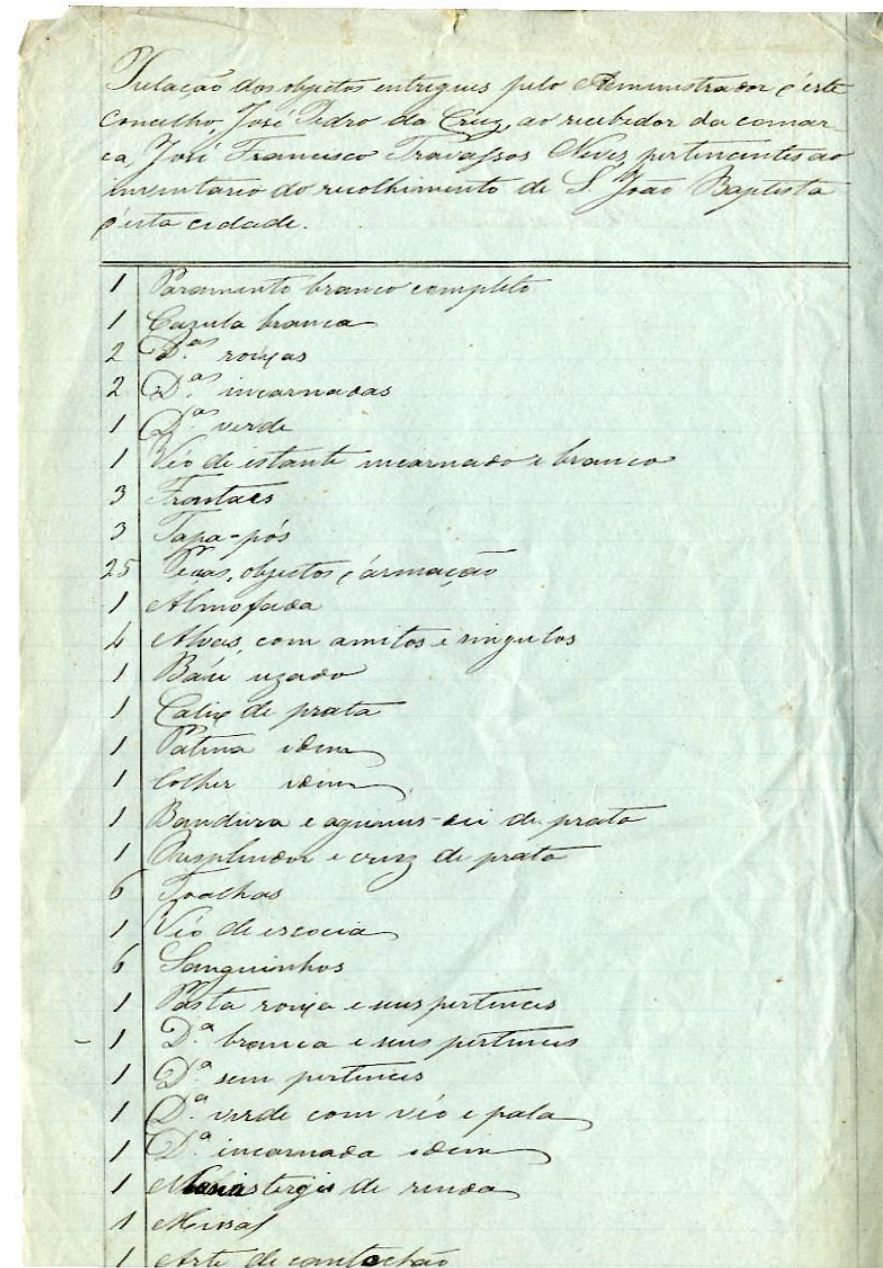 Relação dos objectos entregues pelo Administrador d'este
Concelho, José Pedro da Cruz, ao recebedor da comar-
ca, José Francisco Travassos Neves, pertencentes ao
inventario do recolhimento de S. João Baptista
d'esta cidade.
1 Paramento branco completo
1 Cazula branca
2 D.as roixas
2 D.as incarnadas
1 D.a verde
1 Véo de estante incarnado e branco
3 Frontaes
3 Tapa-pós
25 Peças, objectos d'armação
1 Almofada
4 Alvas, com amitos e singulos
1 Baú uzado
1 Calix de prata
1 Patena idem
1 Colher idem
1 Bandeira e agnus-dei de prata
1 Resplendor e cruz de prata
6 Toalhas
1 Véo de escocia
6 Sanguinhos
1 Pasta roixa e seus pertences
1 D.a branca e seus pertences
1 D.a sem pertences
1 D.a verde com véo e pala
1 D.a incarnada idem
1 de renda
1 Missal
1 Arte de cantochão